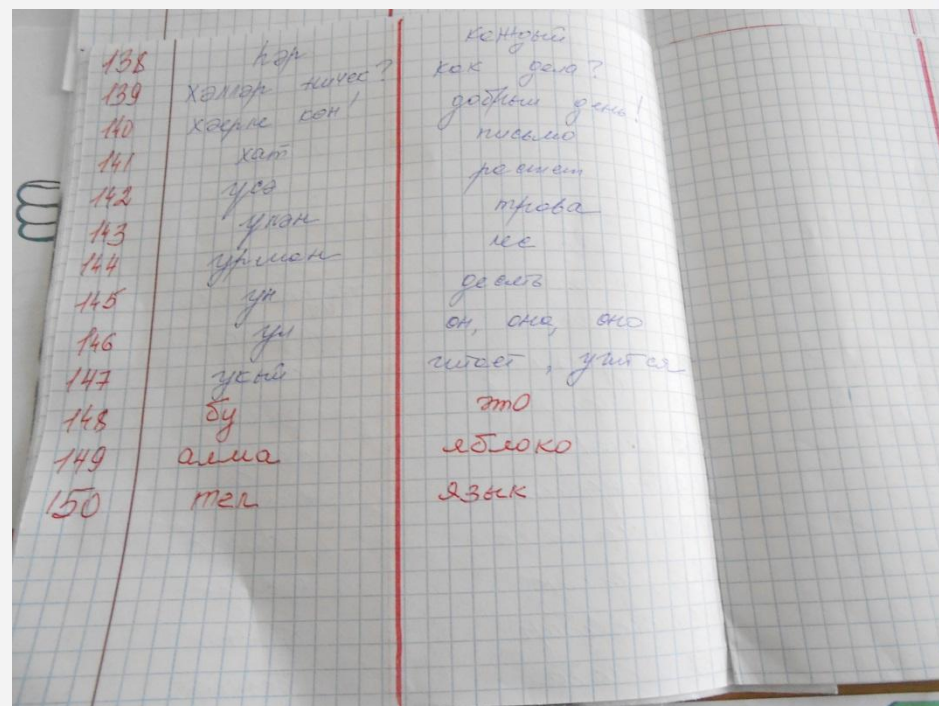 138 һәр каждый
139 хәлләр ничек? как дела?
140 хәерле көн! добрый день!
141 хат письмо
142 үсә растет
143 үлән трава
144 урман лес
145 ун десять
146 ул он, она, оно
147 укый читает, учится
148 бу это
149 алма яблоко
150 тел язык